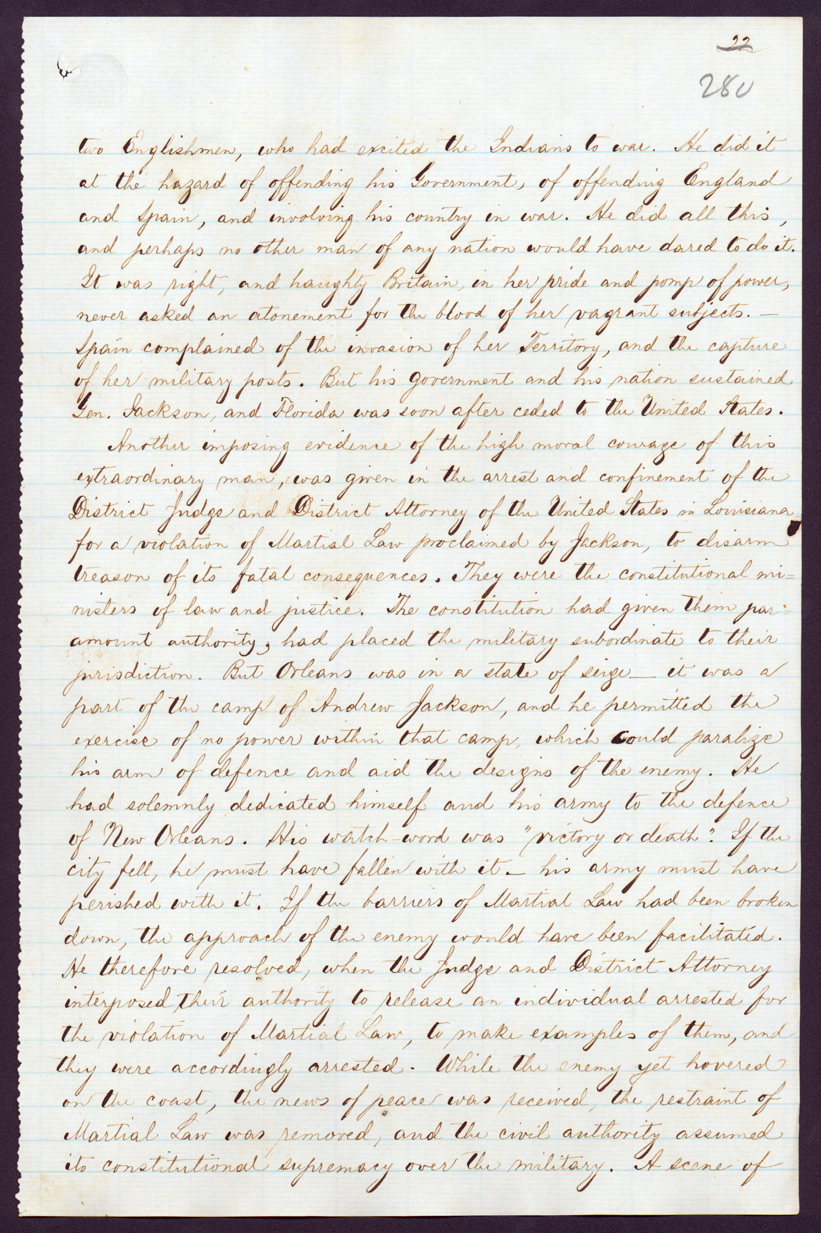 22
280
two Englishmen, who had excited the Indians to war. He did it
at the hazard of offending his Government, of offending England
and Spain, and involving his country in war. He did all this,
and perhaps no other man of any nation would have dared to do it.
It was right, and haughty Britain, in her pride and pomp of power,
never asked an atonement for the blood of her vagrant subjects. —
Spain complained of the invasion of her Territory, and the capture
of her military posts. But his government and his nation sustained
Gen. Jackson, and Florida was soon after ceded to the United States.
Another imposing evidence of the high moral courage of this
extraordinary man, was given in the arrest and confinement of the
District Judge and District Attorney of the United States in Louisiana
for a violation of Martial Law proclaimed by Jackson, to disarm
treason of its fatal consequences. They were the constitutional mi=
nisters of law and justice. The constitution had given them par=
amount authority, had placed the military subordinate to their
jurisdiction. But Orleans was in a state of seige — it was a
part of the camp of Andrew Jackson, and he permitted the
exercise of no power within that camp, which could paralize
his arm of defence and aid the designs of the enemy. He
had solemnly dedicated himself and his army to the defence
of New Orleans. His watch-word was "victory or death". If the
city fell, he must have fallen with it — his army must have
perished with it. If the barriers of Martial Law had been broken
down, the approach of the enemy would have been facilitated.
He therefore resolved, when the Judge and District Attorney
interposed their authority to release an individual arrested for
the violation of Martial Law, to make examples of them, and
they were accordingly arrested. While the enemy yet hovered
on the coast, the news of peace was received, the restraint of
Martial Law was removed, and the civil authority assumed
its constitutional supremacy over the military. A scene of